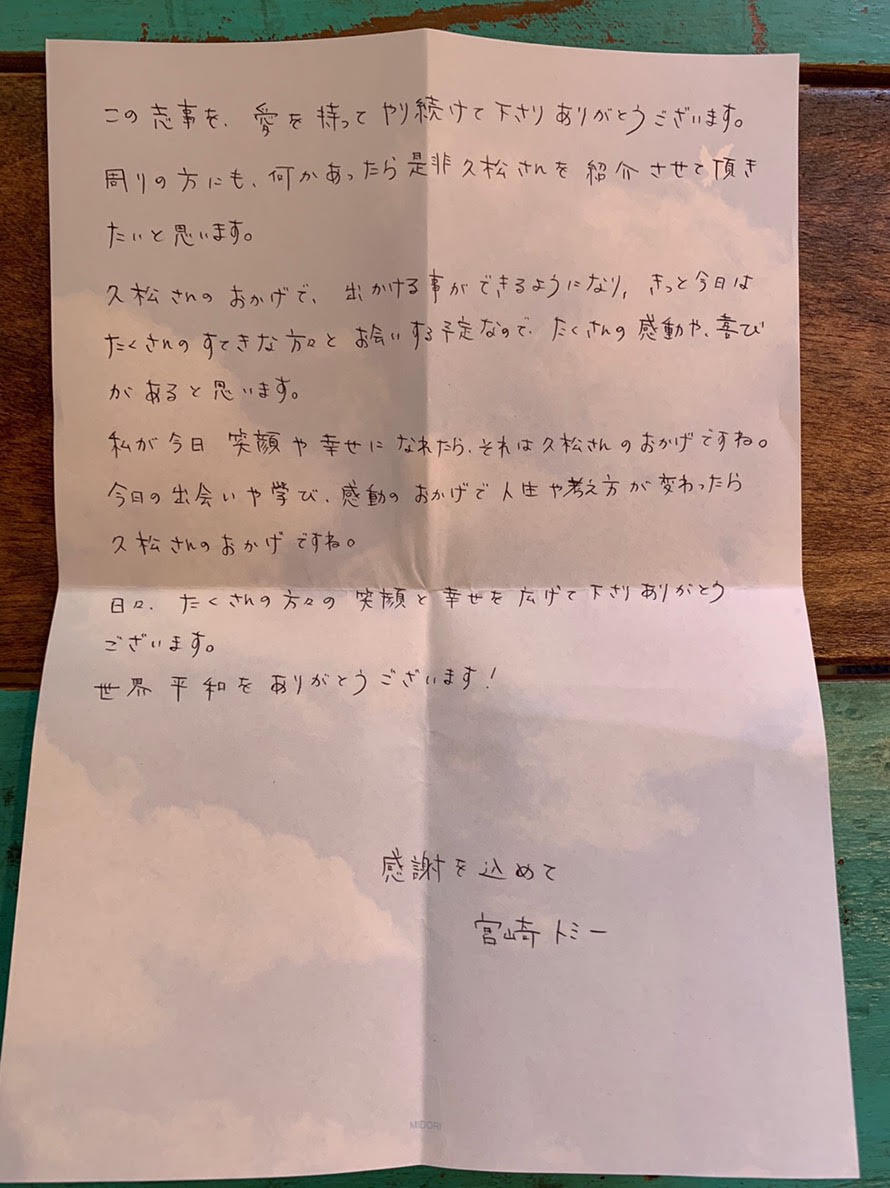 この志事を、愛を持ってやり続けて下さりありがとうございます。
周りの方にも、何かあったら是非久松さんを紹介させて頂き
たいと思います。
久松さんのおかげで、出かける事ができるようになり、きっと今日は
たくさんのすてきな方々とお会いする予定なので、たくさんの感動や、喜び
があると思います。
私が今日笑顔や幸せになれたら、それは久松さんのおかげですね。
今日の出会いや学び、感動のおかげで人生や考え方が変わったら
久松さんのおかげですね。
日々、たくさんの方々の笑顔と幸せを広げて下さりありがとう
ございます。
世界平和をありがとうございます!
感謝を込めて
宮崎トミー
MIDORI